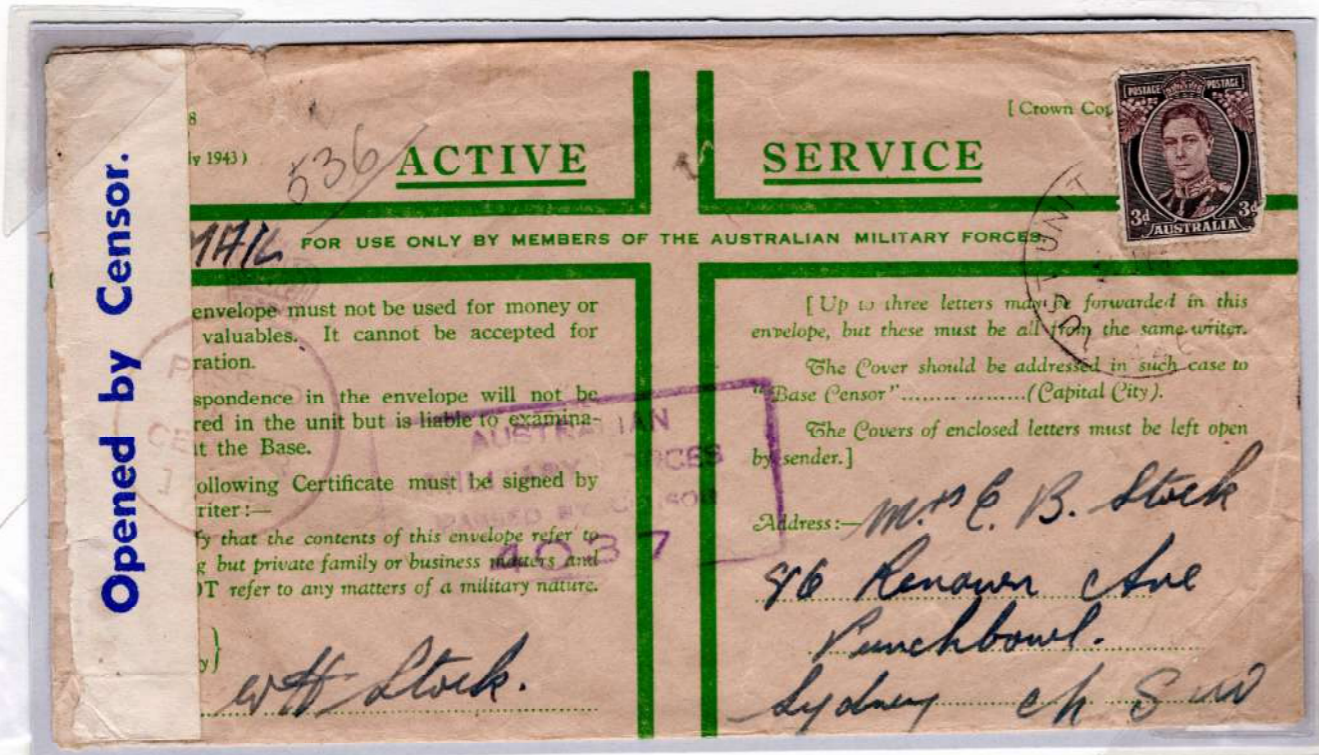 Opened by Censor.
8
y 1943)
[ Crown Cop
536
ACTIVE SERVICE
POSTAGE POSTAGE
3d 3d
AUSTRALIA
MAIL
FOR USE ONLY BY MEMBERS OF THE AUSTRALIAN MILITARY FORCES.
UNIT
envelope must not be used for money or
valuables. It cannot be accepted for
ration.
spondence in the envelope will not be
red in the unit but is liable to examina-
t the Base.
ollowing Certificate must be signed by
riter :—
fy that the contents of this envelope refer to
g but private family or business matters and
OT refer to any matters of a military nature.
y)
W H Stock.
AUSTRALIAN
MILITARY FORCES
PASSED BY CENSOR
4037
[ Up to three letters may be forwarded in this
envelope, but these must be all from the same writer.
The Cover should be addressed in such case to
"Base Censor"..................(Capital City).
The Covers of enclosed letters must be left open
by sender.]
Address:— Mrs E. B. Stock
96 Renown Ave
Punchbowl.
Sydney